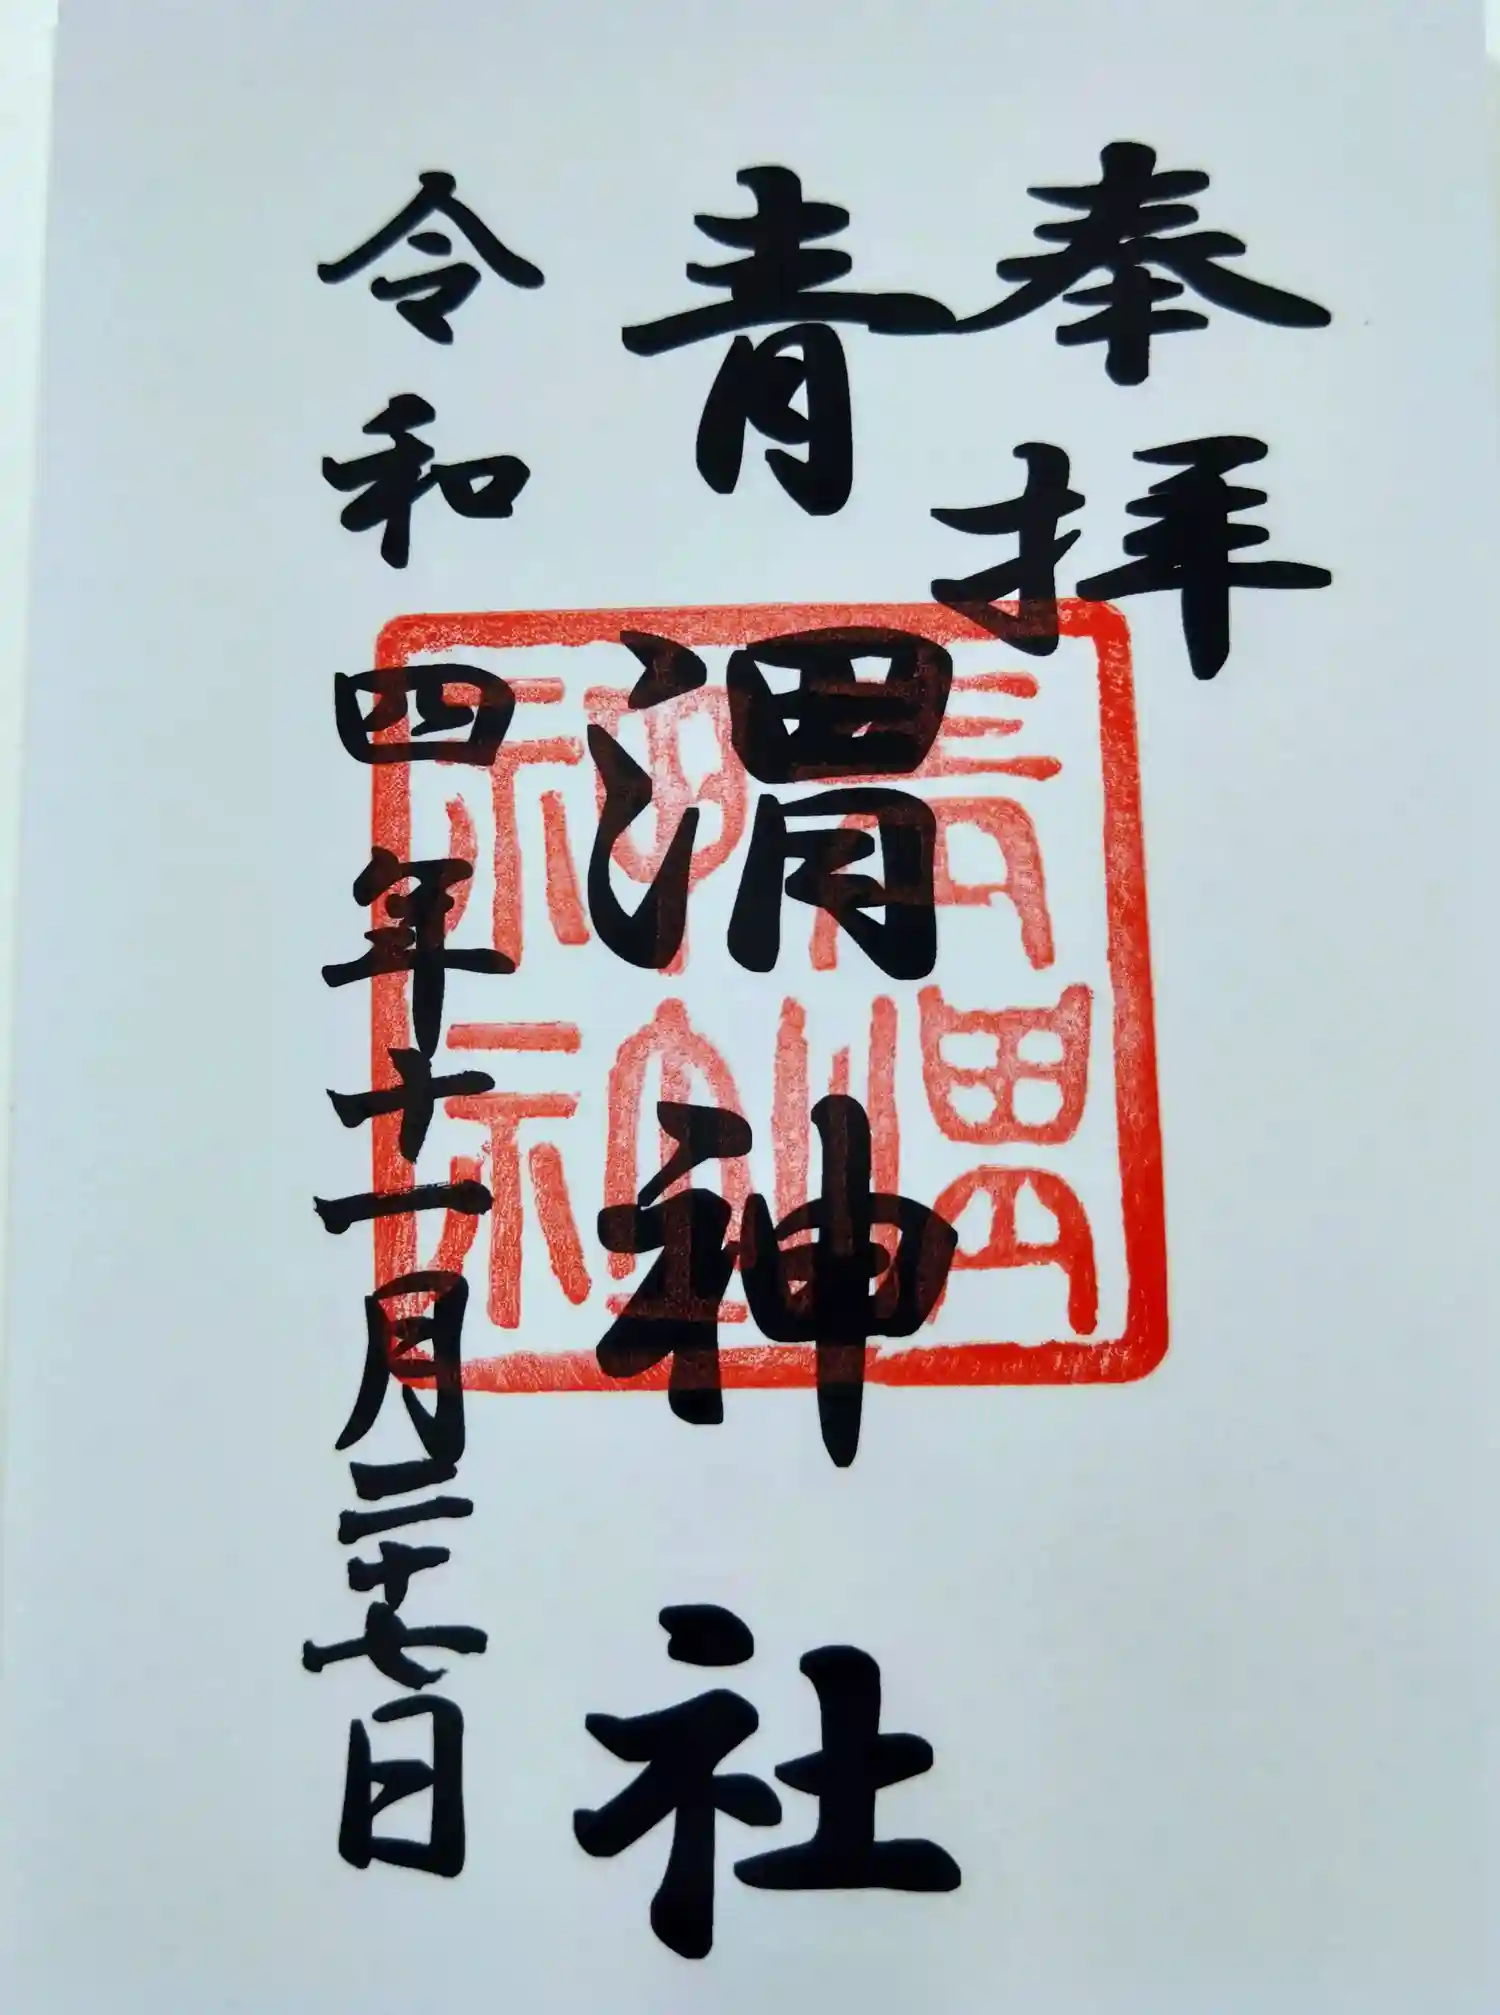 奉拝
青渭神社
青渭神社
令和四年十一月二十七日